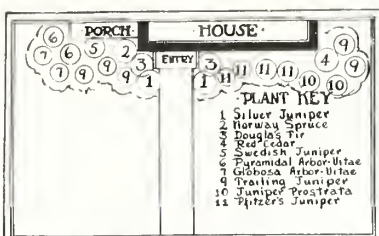 PORCH
HOUSE
6 5 2
6 7 9 9 3
7 9 1
ENTRY
3 9
4 9
1 11 11 11 11 10 10
PLANT KEY
1 Silver Juniper
2 Norway Spruce
3 Douglas Fir
4 Red Cedar
5 Swedish Juniper
6 Pyramidal Arbor-Vitae
7 Globosa Arbor-Vitae
9 Trailing Juniper
10 Juniper Prostrata
11 Pfitzer's Juniper